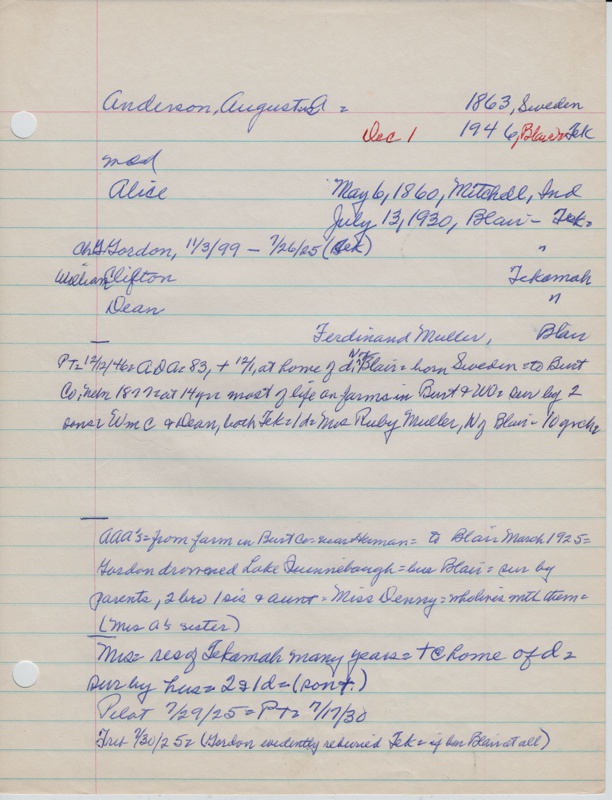 Anderson, August A = 1863, Sweden
Dec 1 1946, Blair = Tek
mod
Alice May 6, 1860, Mitchell, Ind
July 13, 1930, Blair - Tek =
Ch G Gordon, 11/3/99 - 7/26/25 (Tek) "
William Clifton Tekamah
Dean "
Ferdinand Muller, Blair
PT = 12/12/46 = ADA = 83, + 12/1, at home of d, N of Blair = born Sweden = to Burt
Co, Nebr 1877 = at 14 yr most of life on farms in Burt & WO = sur by 2
sons = Wm C & Dean, both Tek = 1 d = Mrs Ruby Muller, N of Blair - 10 grch =
AAA's = from farm in Burt Co = near Herman = to Blair March 1925 =
Gordon drowned Lake Quinnebaugh = bur Blair = sur by
parents, 2 bro 1 sis & aunt = Miss Denny = who lives with them =
(Mrs A's sister)
Mrs = res of Tekamah many years = + @ home of d =
sur by hus = 2 & 1 d =
Pilot 7/29/25 = PT = 7/17/30
Trib 7/30/25 = (Gordon evidently reburied Tek = if bur Blair at all)